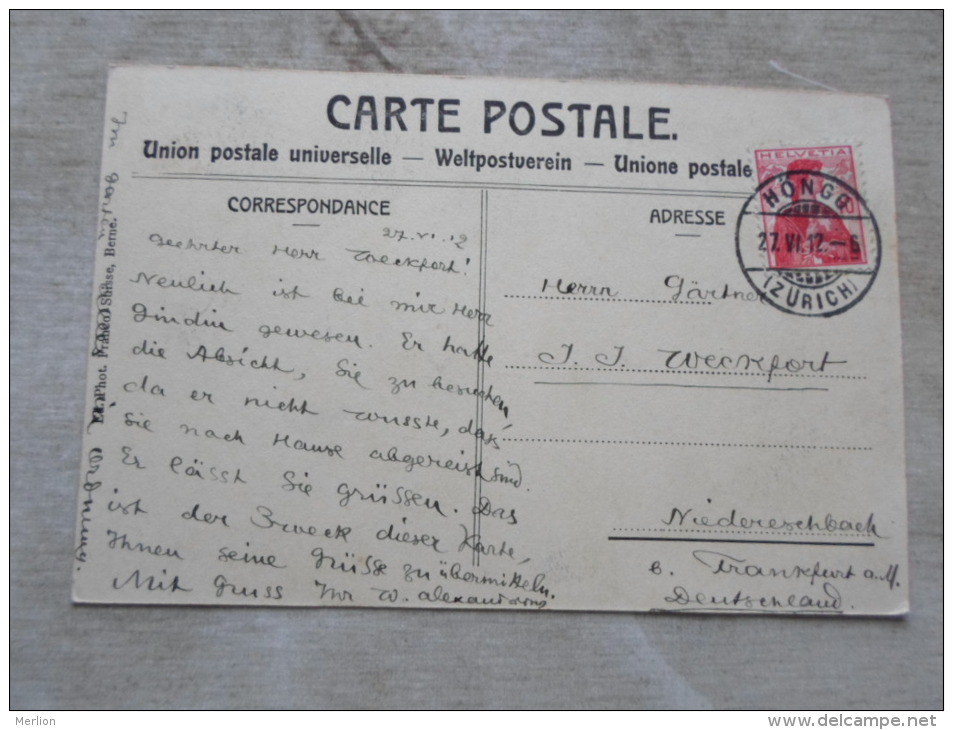 CARTE POSTALE.
Union postale universelle — Weltpostverein — Unione postale
HELVETIA
HÖNGG
27.VI.12.–6
(ZÜRICH)
CORRESPONDANCE
27.VI.12
Geehrter Herr Weckfort!
Neulich ist bei mir Herr
Gindin gewesen. Er hatte
die Absicht, Sie zu besuchen,
da er nicht wusste, dass
Sie nach Hause abgereist sind.
Er lässt Sie grüssen. Das
ist der Zweck dieser Karte,
Ihnen seine Grüsse zu übermitteln.
Mit Gruss Ihr W.
Im Garten
Ordnung.
Phot. Franco Suisse, Berne.
ADRESSE
Herrn Gärtner
J. J. Weckfort
Niedereschbach
b. Frankfurt a.M.
Deutschland.
Merlion
http://www.delcampe.net